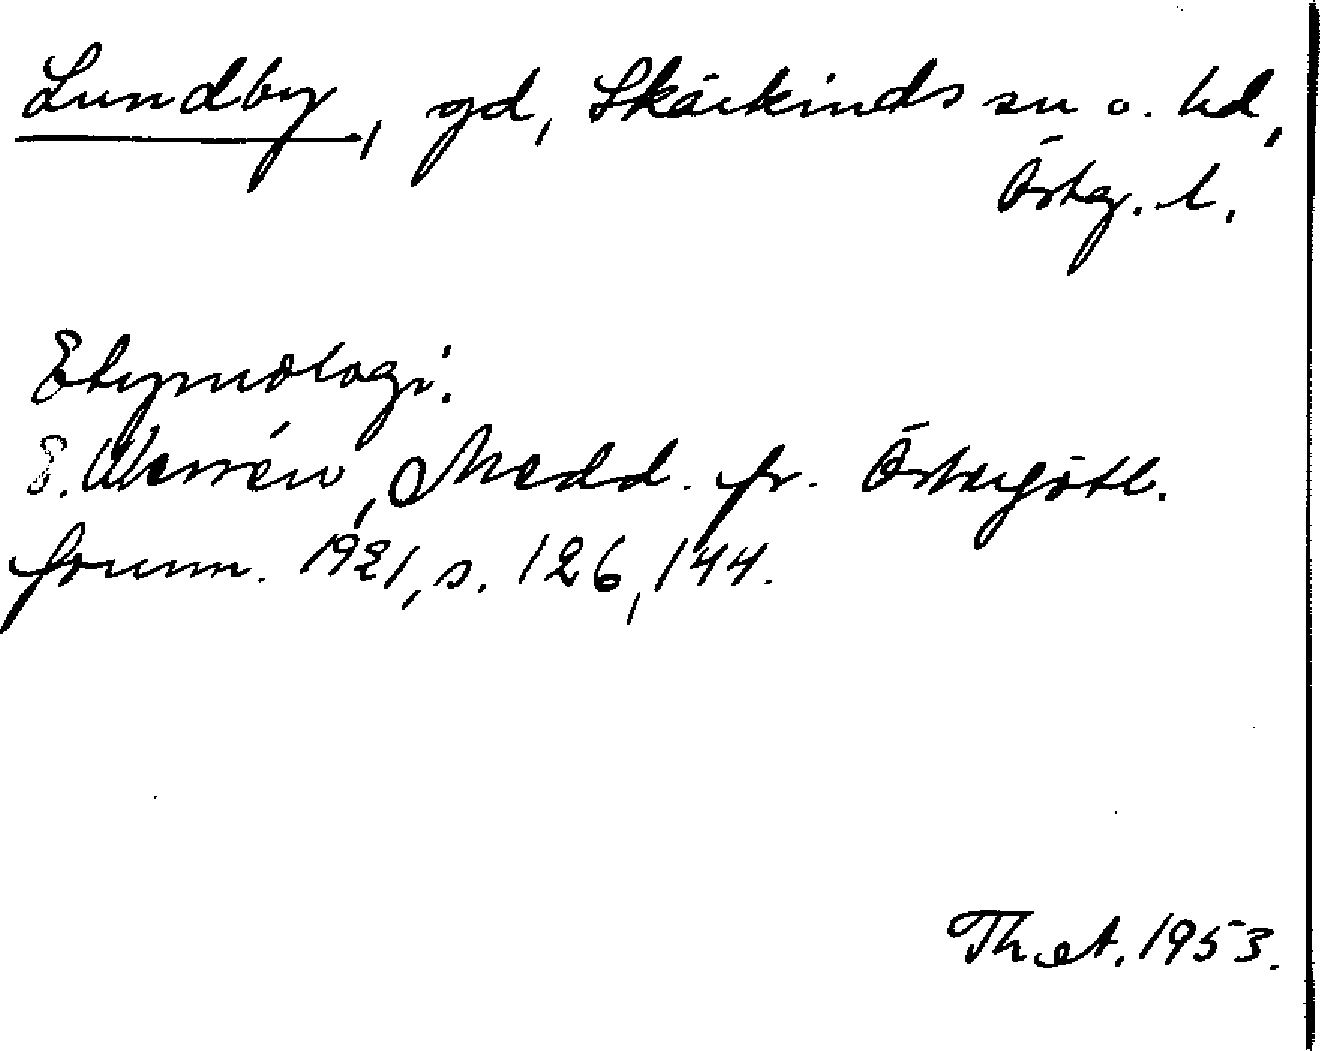 Lundby, gd, Skärkinds sn o. hd,
Östg. l.
Etymologi:
E. Wessén, Medd. fr. Östergötl.
fornm. 1921, s. 126, 144.
Th. A. 1953.